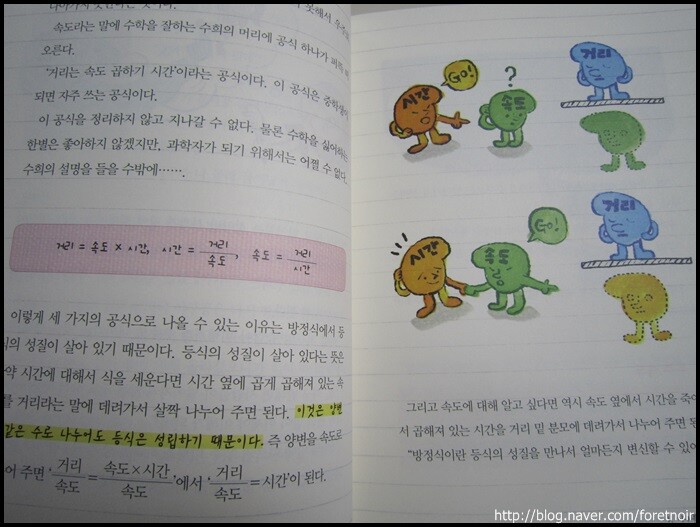 속도라는 말에 수학을 잘하는 수희의 머리에 공식 하나가
오른다.
'거리는 속도 곱하기 시간'이라는 공식이다. 이 공식은
되면 자주 쓰는 공식이다.
이 공식을 정리하지 않고 지나갈 수 없다. 물론 수학을
한별은 좋아하지 않겠지만, 과학자가 되기 위해서는 어쩔 수 없다.
수희의 설명을 들을 수밖에…….
거리 = 속도 × 시간, 시간 = 거리/속도, 속도 = 거리/시간
이렇게 세 가지의 공식으로 나올 수 있는 이유는 방정식에서 등
식의 성질이 살아 있기 때문이다. 등식의 성질이 살아 있다는 뜻은
약 시간에 대해서 식을 세운다면 시간 옆에 곱게 곱해져 있는 속
를 거리라는 말에 데려가서 살짝 나누어 주면 된다. 이것은 양변
같은 수로 나누어도 등식은 성립하기 때문이다. 즉 양변을 속도로
어 주면 '거리/속도 = 속도×시간/속도'에서 '거리/속도 = 시간'이 된다.
시간
Go!
?
속도
거리
시간
속도
Go!
거리
그리고 속도에 대해 알고 싶다면 역시 속도 옆에서 시간을
서 곱해져 있는 시간을 거리 밑 분모에 데려가서 나누어 주면
"방정식이란 등식의 성질을 만나서 얼마든지 변신할 수
http://blog.naver.com/foretnoir